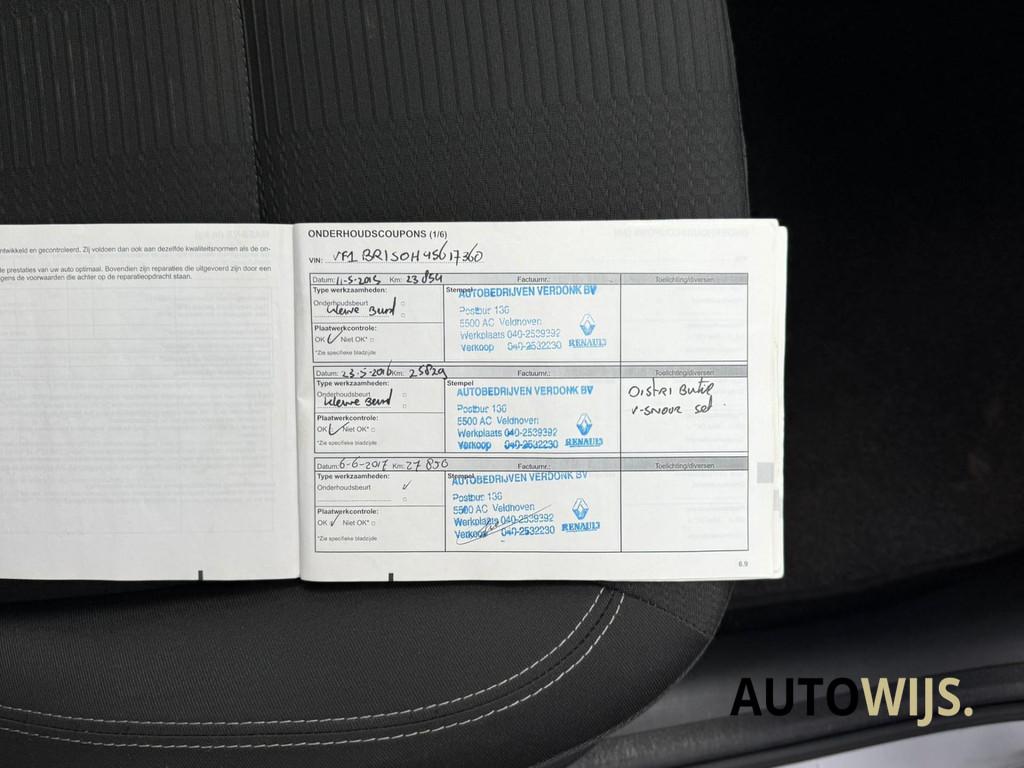 ntwikkeld en gecontroleerd. Zij voldoen dan ook aan dezelfde kwaliteitsnormen als de on-
de prestaties van uw auto optimaal. Bovendien zijn reparaties die uitgevoerd zijn door een
gens de voorwaarden die achter op de reparatieopdracht staan.
ONDERHOUDSCOUPONS (1/6)
VIN: VF1BR1S0H45617360
Datum: 11-5-2015 Km: 23854 Factuurnr.: Toelichting/diversen
Type werkzaamheden:
Onderhoudsbeurt
kleine Beurt
Plaatwerkcontrole:
OK ✓ Niet OK*
*Zie specifieke bladzijde
Stempel
AUTOBEDRIJVEN VERDONK BV
Postbur 136
5500 AC Veldhoven
Werkplaats 040-2539392
Verkoop 040-2532230
RENAULT
Datum: 23-5-2016 Km: 25829 Factuurnr.: Toelichting/diversen
Type werkzaamheden:
Onderhoudsbeurt
kleine Beurt
Plaatwerkcontrole:
OK ✓ Niet OK*
*Zie specifieke bladzijde
Stempel
AUTOBEDRIJVEN VERDONK BV
Postbur 136
5500 AC Veldhoven
Werkplaats 040-2539392
Verkoop 040-2532230
RENAULT
DISTRIBUTIE
V-SNOUR set
Datum: 6-6-2017 Km: 27850 Factuurnr.: Toelichting/diversen
Type werkzaamheden:
Onderhoudsbeurt ✓
Plaatwerkcontrole:
OK ✓ Niet OK*
*Zie specifieke bladzijde
Stempel
AUTOBEDRIJVEN VERDONK BV
Postbur 136
5500 AC Veldhoven
Werkplaats 040-2539392
Verkoop 040-2532230
RENAULT
6.9
AUTOWIJS.